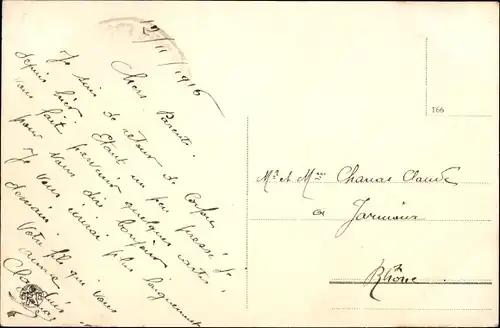 12/11/1916
Chers Parents.
Je suis de retour de
depuis hier. Étant un peu pressé je
vous fait parvenir quelques cartes
pour vous dire bonjour
Je vous écrirai plus longuement
demain.
Votre fils qui vous
aime
Claudius
166
Mr et Mme Chanas Claude
à
Rhône